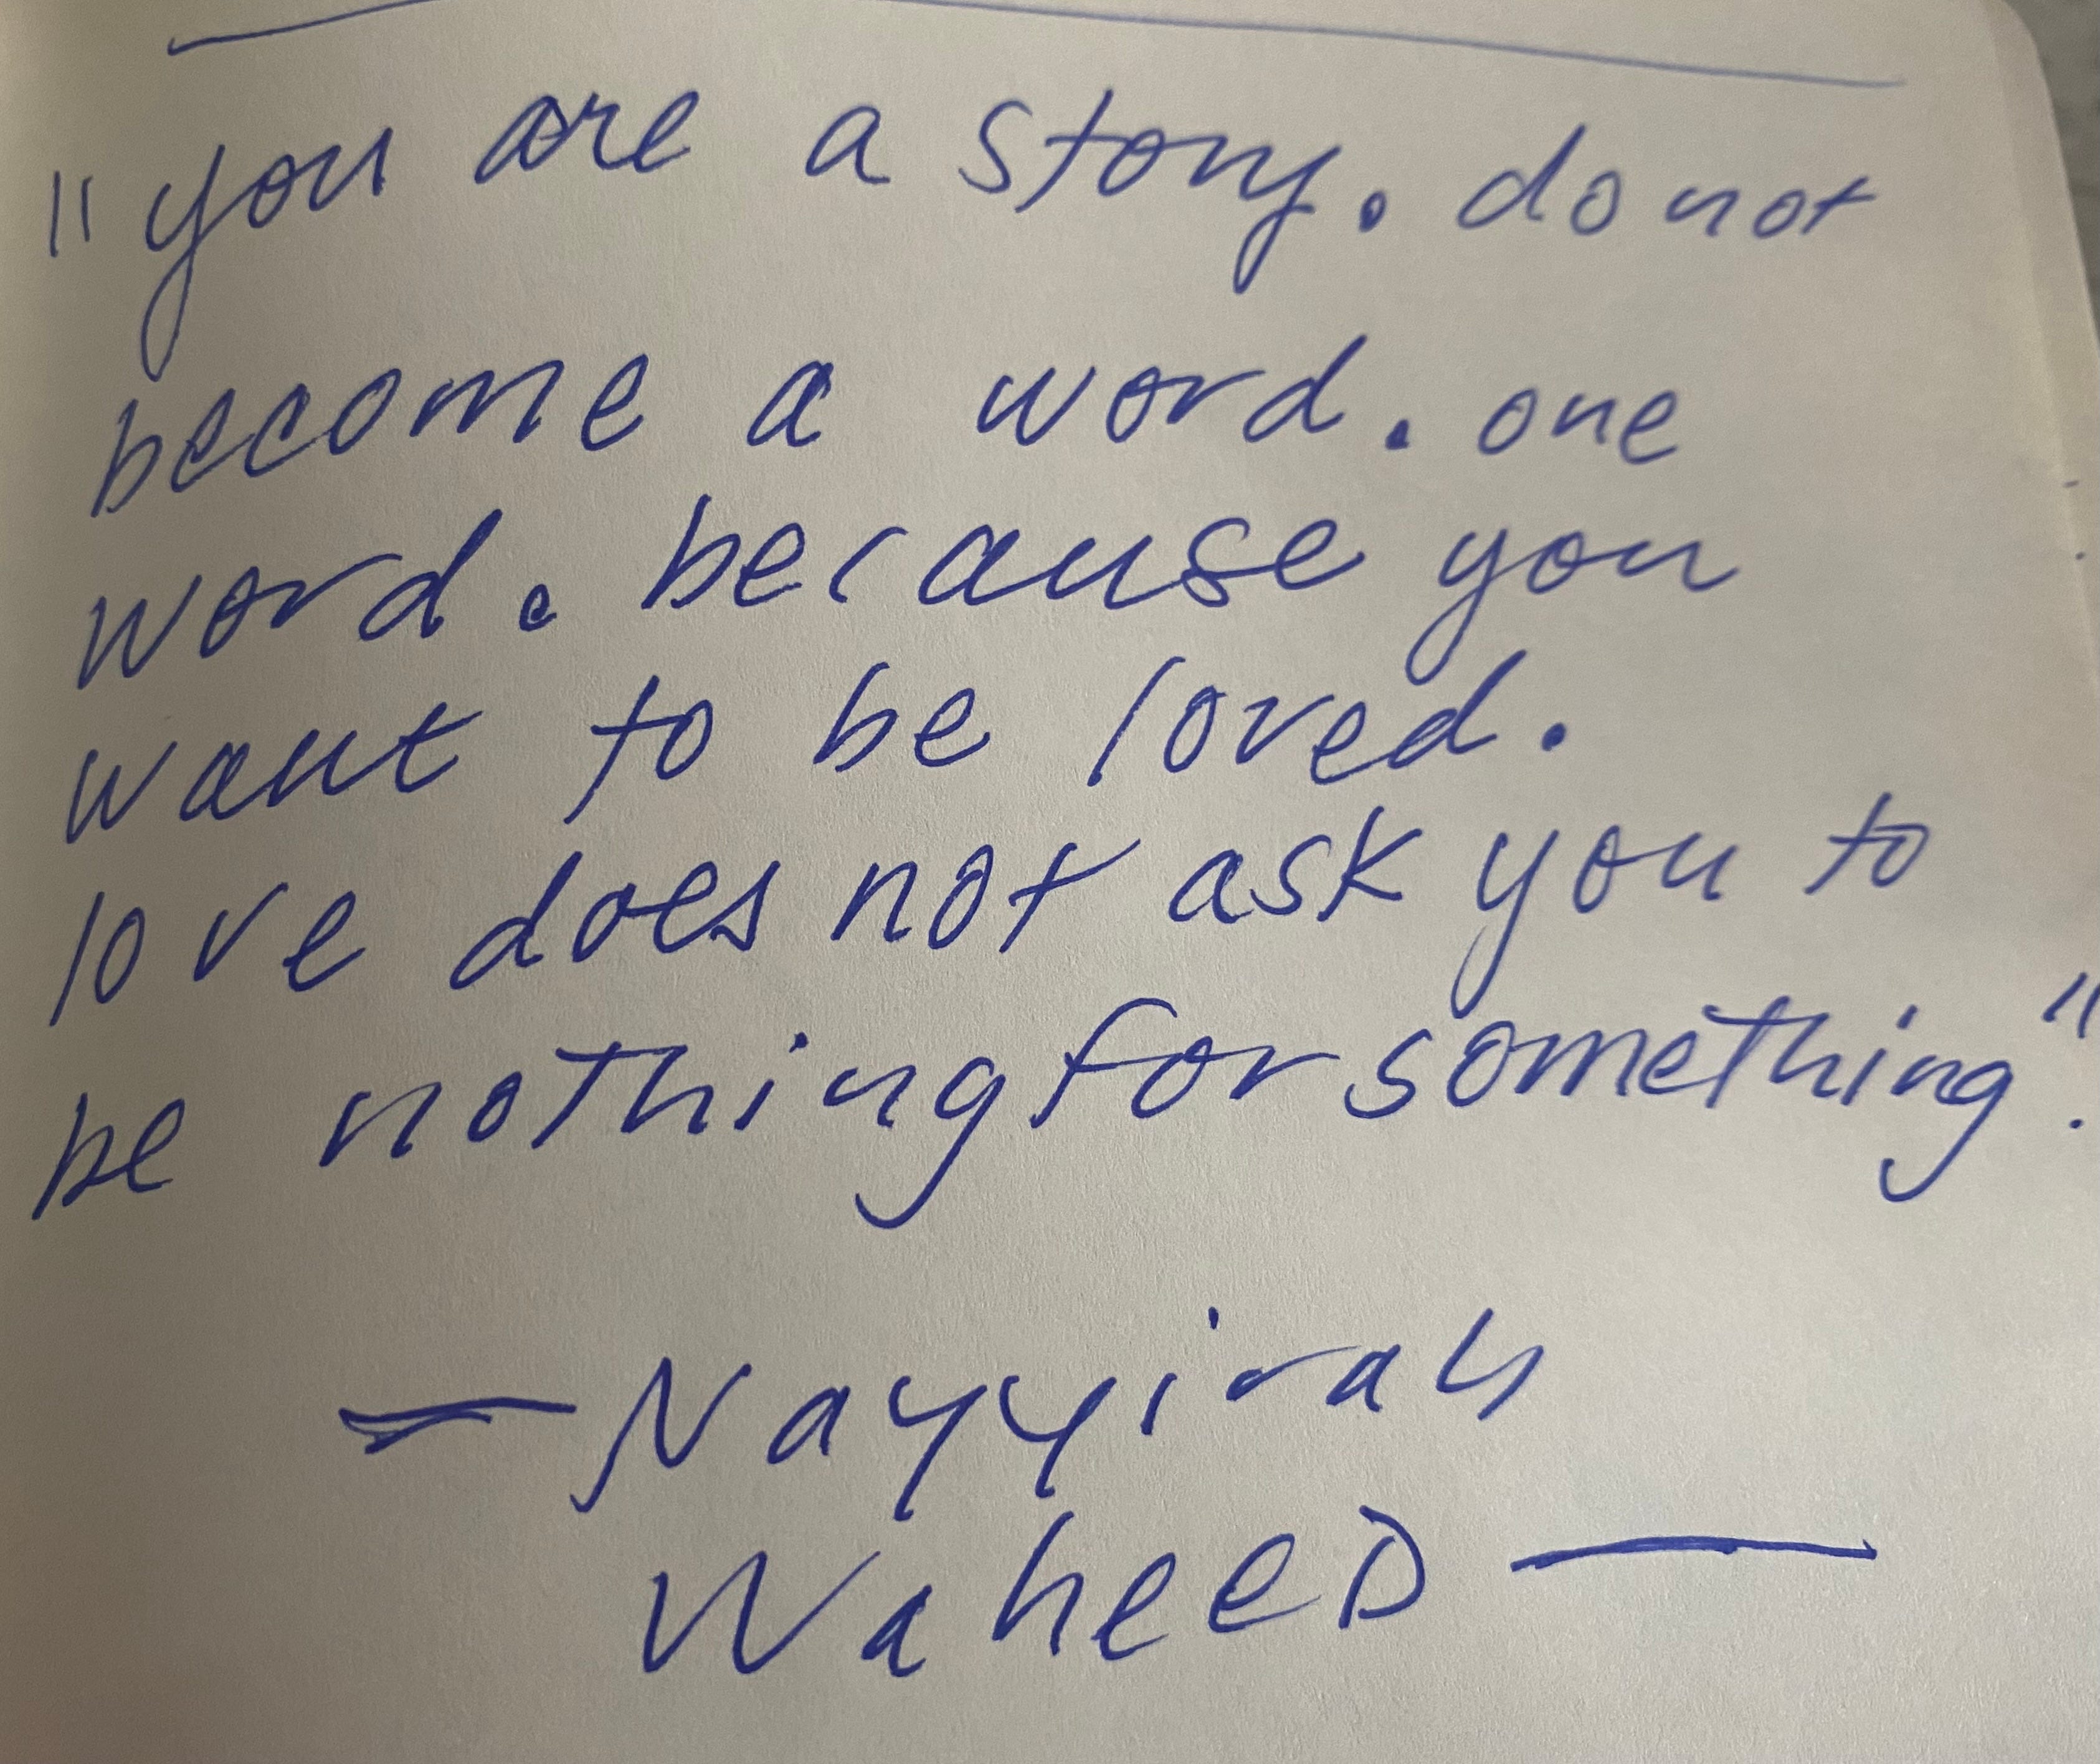 "you are a story. do not
become a word. one
word. because you
want to be loved.
love does not ask you to
be nothing for something".
— Nayyirah
Waheed —